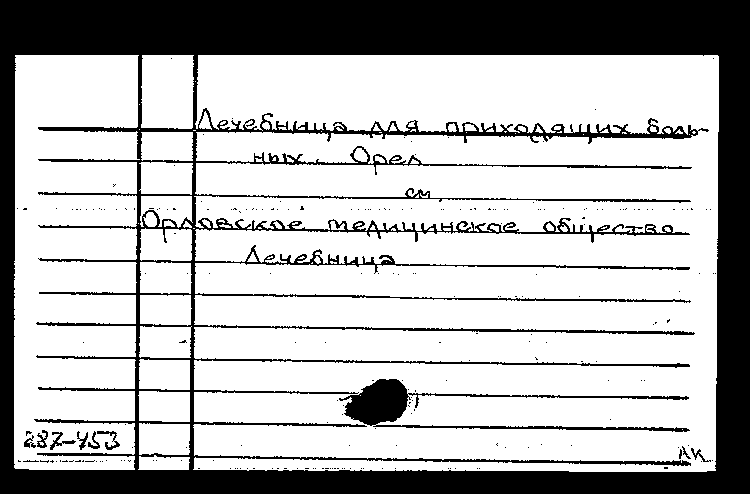 Лечебница для приходящих боль-
ных. Орел
см.
Орловское медицинское общество
Лечебница
287-453
АК